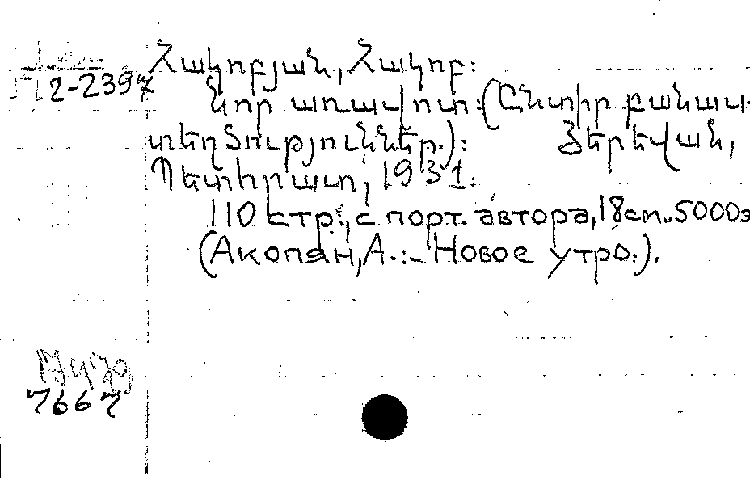 Հակոբյան, Հակոբ:
П 2-2397
Նոր առավոտ: (Ընտիր բանաս-
տեղծություններ.): Յերեվան,
Պետհրատ, 1931:
110 стр., с порт. автора, 18см. 5000э
(Акопян, А.:- Новое утро.).
7667